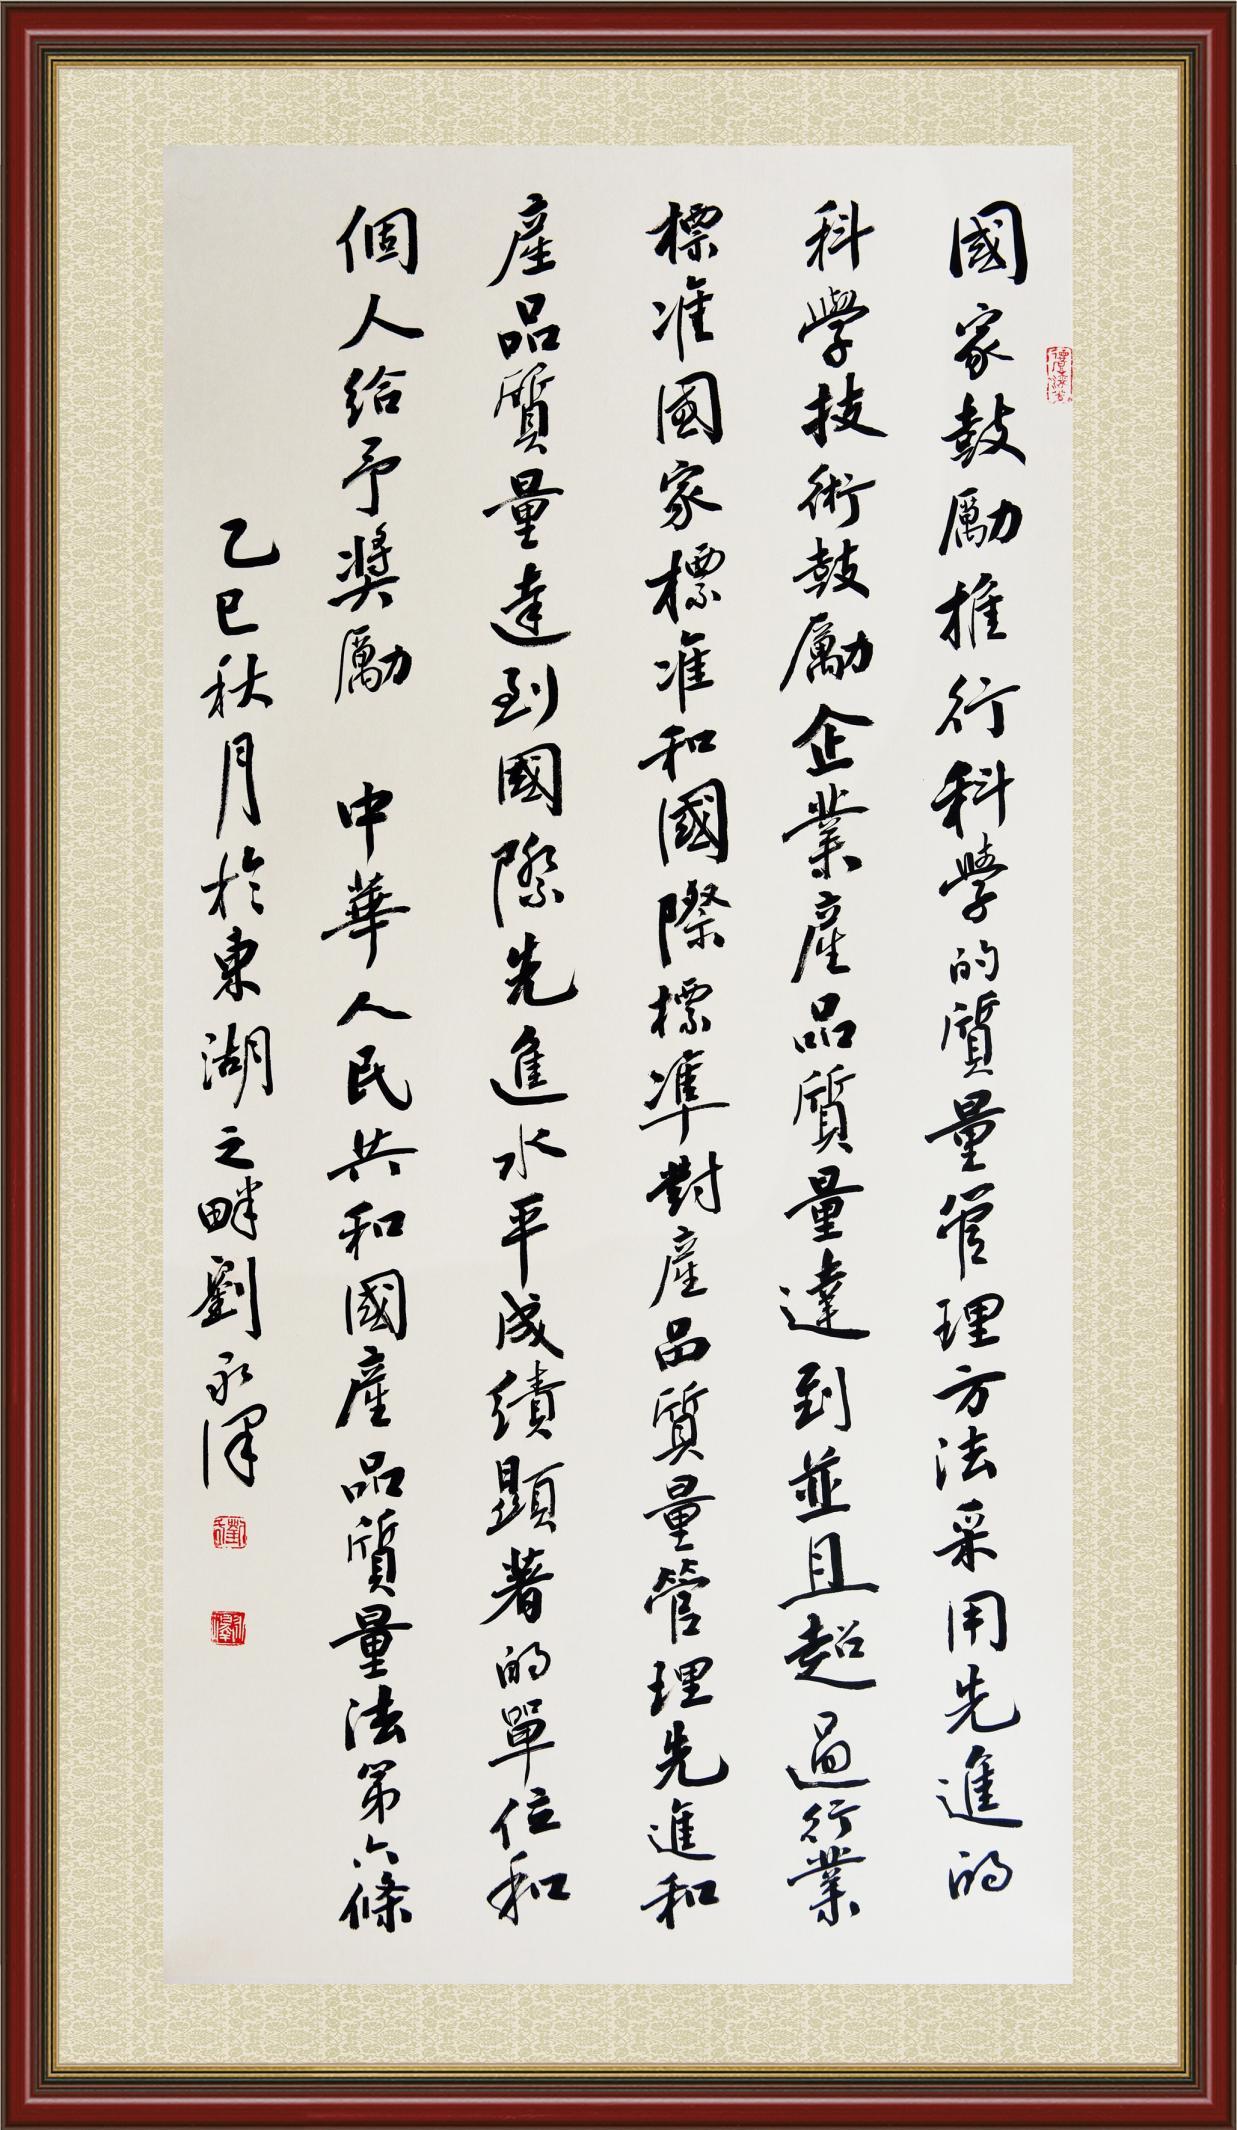 國家鼓勵推行科學的質量管理方法采用先進的
科學技術鼓勵企業產品質量達到並且超過行業
標准國家標准和國際標準對產品質量管理先進和
產品質量達到國際先進水平成績顯著的單位和
個人給予獎勵 中華人民共和國產品質量法第六條
乙巳秋月於東湖之畔劉永澤